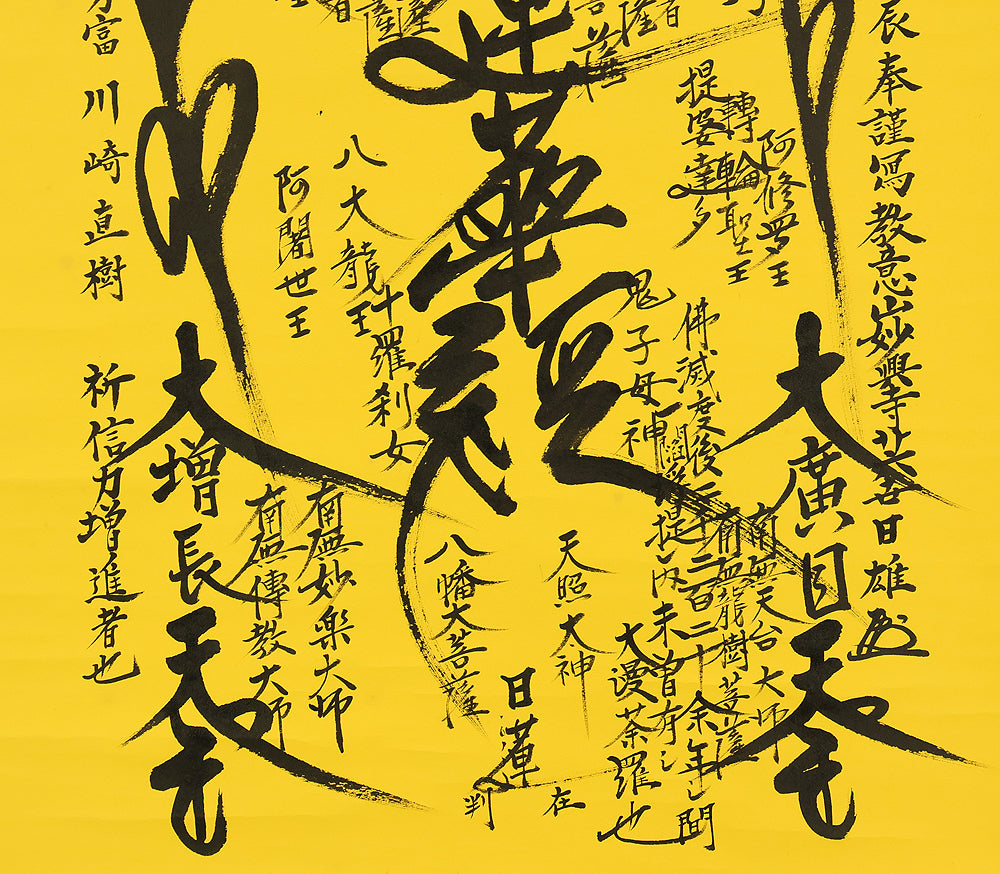 辰奉謹寫教意山妙學寺
日雄
大廣目天王
阿修羅王
轉輪聖王
提婆達多
南無天台大師
南無龍樹菩薩
佛滅度後二千二百二十余年之間
一閻浮提之内未曾有之
大漫荼羅也
鬼子母神
天照太神
蓮華經
題
日蓮
在
判
八幡大菩薩
十羅刹女
八大龍王
阿闍世王
南無妙楽大師
南無傳教大師
大增長天王
富川崎直樹
祈信力增進者也